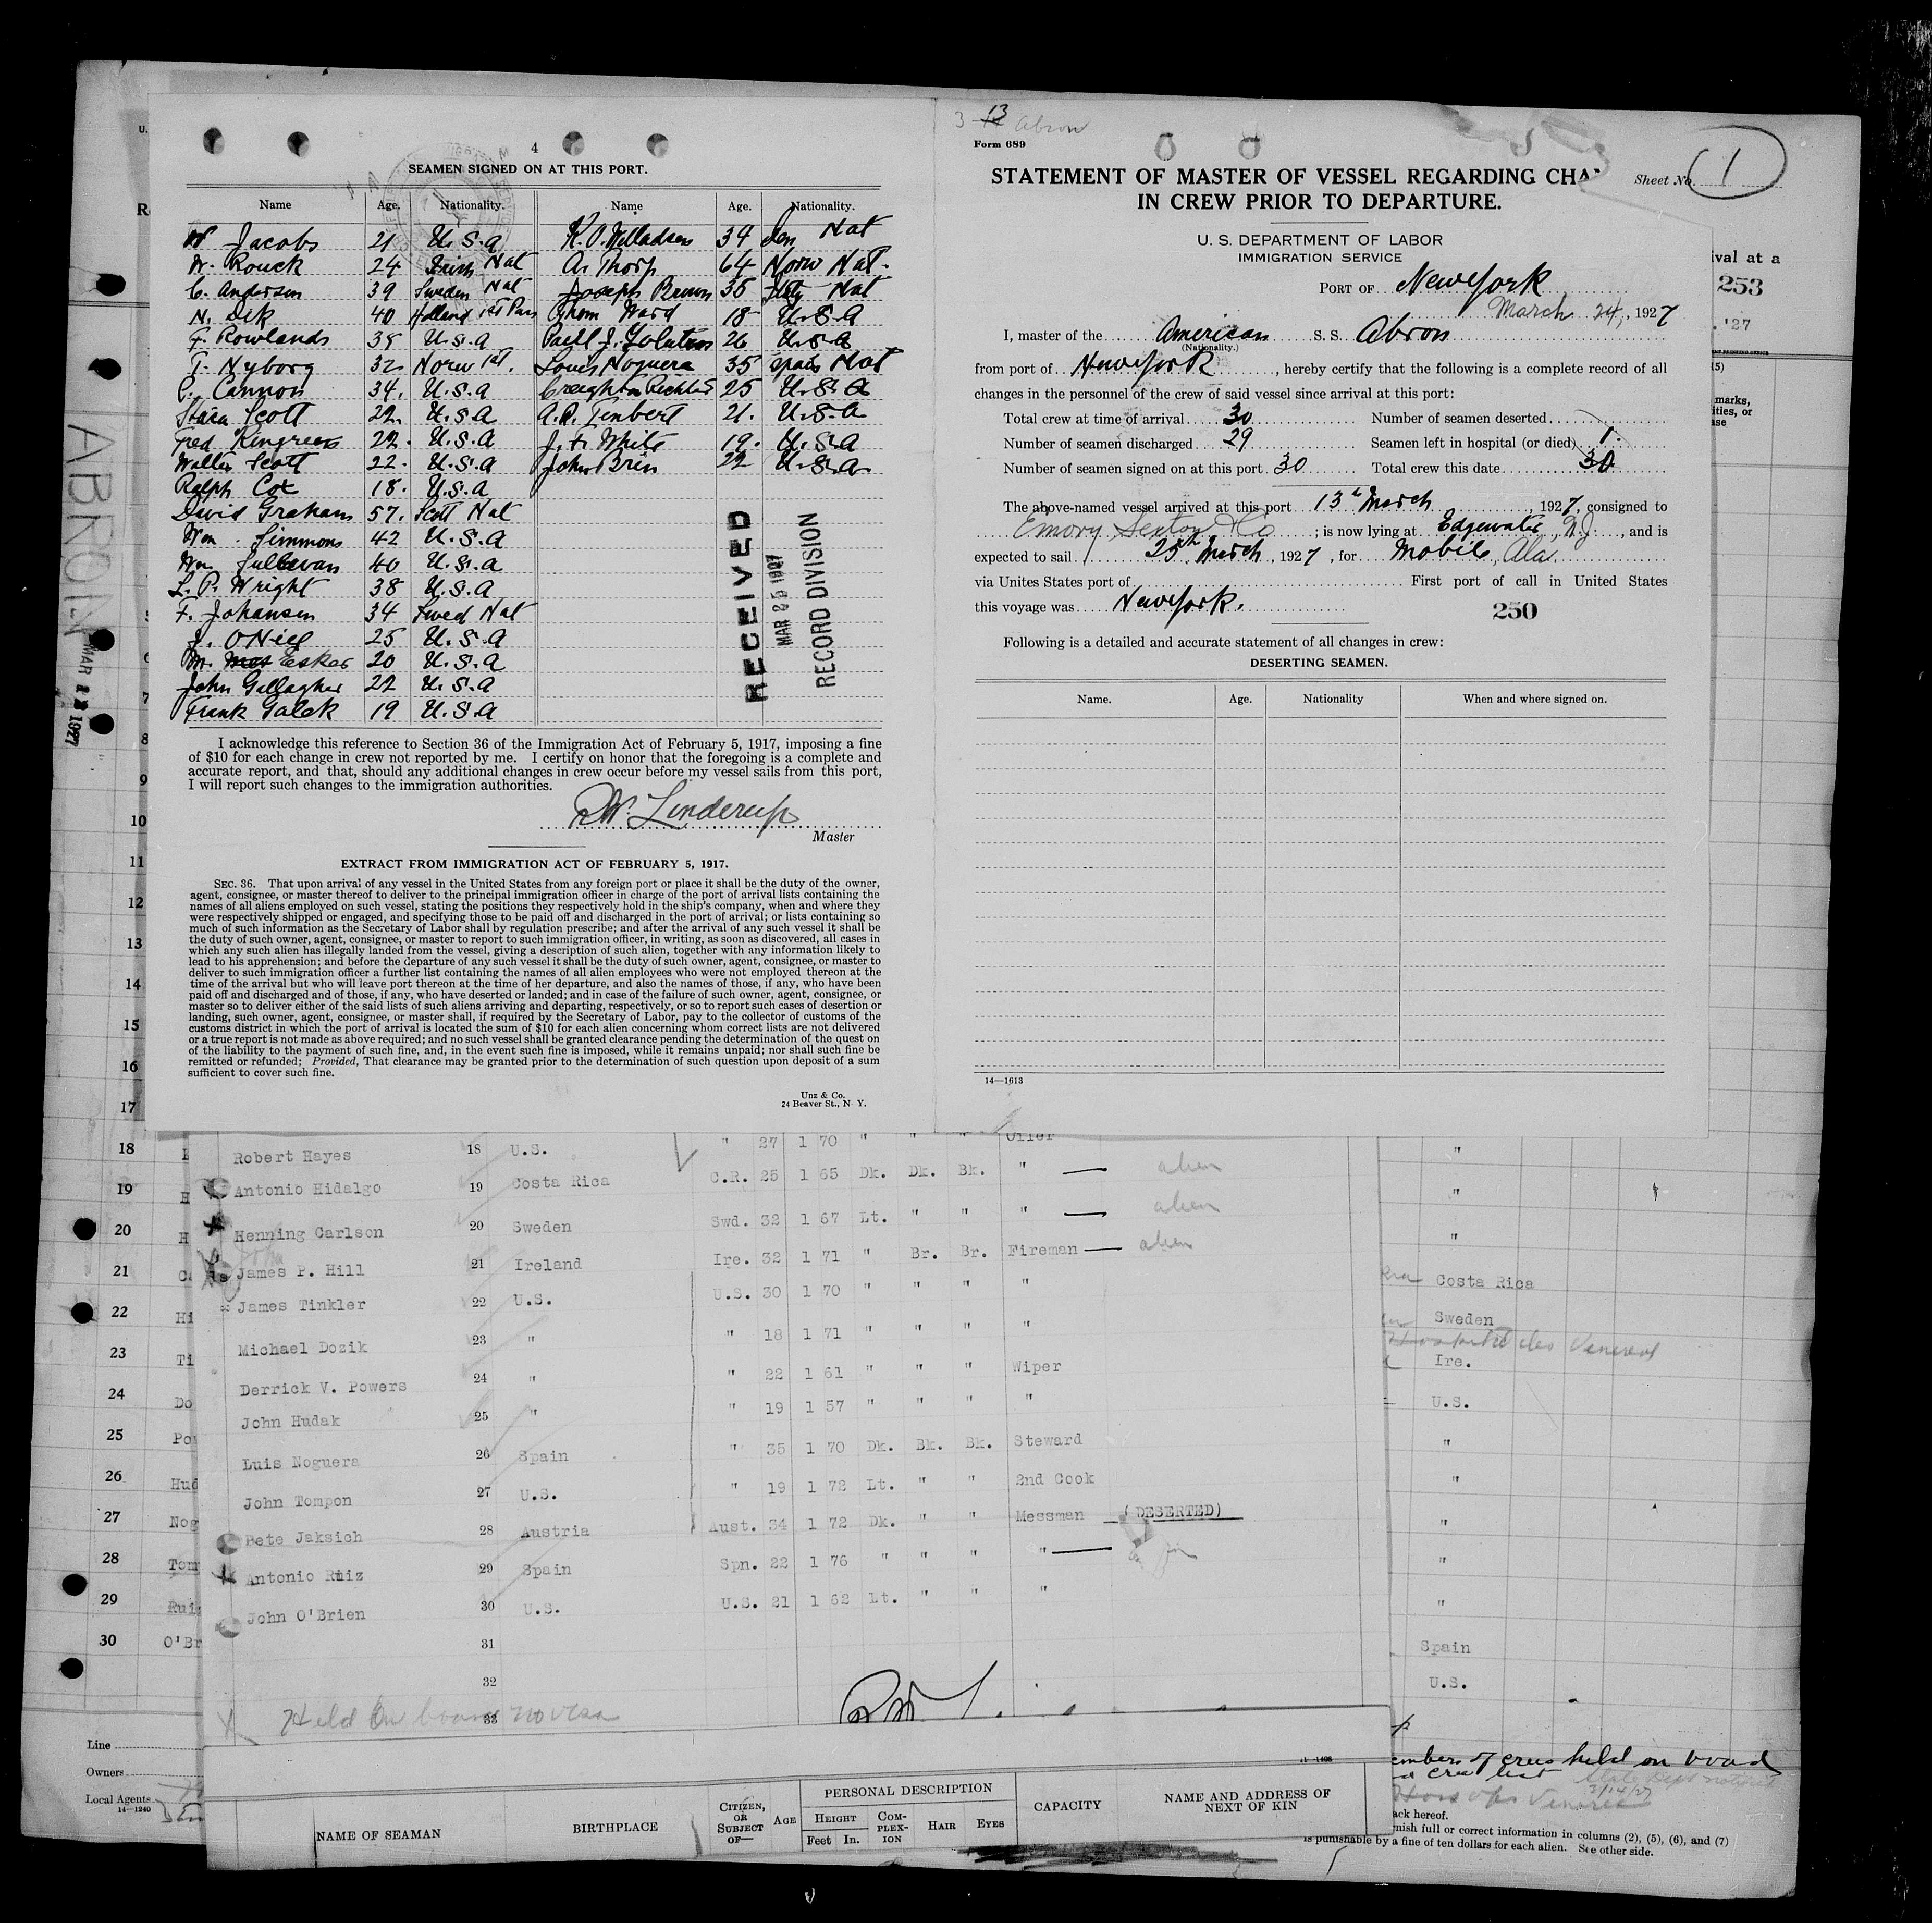 4
SEAMEN SIGNED ON AT THIS PORT.
Name Age. Nationality. Name Age. Nationality.
W Jacobs 21 U.S.A K.O. Willadsen 34 Den Nat
W. Rouck 24 Irish Nat A. Thorp 64 Norw Nat.
C. Andersen 39 Sweden Nat Joseph Brown 35 Nat
N. Dek 40 Holland 1st Pass Ward 18 U.S.A
Rowlands 35 U.S.A Paul J. 26 U.S.A
T. Nyborg 32 Norw 1st. Louis Noguera 35 Spain Nat
Cannon 34. U.S.A Creighton 25 U.S.A
Scott 22. U.S.A 21. U.S.A
Fred 22. U.S.A White 19. U.S.A
Walter Scott 22. U.S.A John Brin 22 U.S.A
Ralph Cox 18. U.S.A
David Graham 57. Scott Nat
Wm. Simmons 42 U.S.A
Wm Sullevan 40 U.S.A
L. P. Wright 38 U.S.A
F. Johansen 34 Swed Nat
J. ONiel 25 U.S.A
M. Esker 20 U.S.A
John Gallagher 22 U.S.A
Frank Galek 19 U.S.A
RECEIVED
MAR 25 1927
RECORD DIVISION
I acknowledge this reference to Section 36 of the Immigration Act of February 5, 1917, imposing a fine
of $10 for each change in crew not reported by me. I certify on honor that the foregoing is a complete and
accurate report, and that, should any additional changes in crew occur before my vessel sails from this port,
I will report such changes to the immigration authorities.
Linderup
Master
EXTRACT FROM IMMIGRATION ACT OF FEBRUARY 5, 1917.
SEC. 36. That upon arrival of any vessel in the United States from any foreign port or place it shall be the duty of the owner,
agent, consignee, or master thereof to deliver to the principal immigration officer in charge of the port of arrival lists containing the
names of all aliens employed on such vessel, stating the positions they respectively hold in the ship's company, when and where they
were respectively shipped or engaged, and specifying those to be paid off and discharged in the port of arrival; or lists containing so
much of such information as the Secretary of Labor shall by regulation prescribe; and after the arrival of any such vessel it shall be
the duty of such owner, agent, consignee, or master to report to such immigration officer, in writing, as soon as discovered, all cases in
which any such alien has illegally landed from the vessel, giving a description of such alien, together with any information likely to
lead to his apprehension; and before the departure of any such vessel it shall be the duty of such owner, agent, consignee, or master to
deliver to such immigration officer a further list containing the names of all alien employees who were not employed thereon at the
time of the arrival but who will leave port thereon at the time of her departure, and also the names of those, if any, who have been
paid off and discharged and of those, if any, who have deserted or landed; and in case of the failure of such owner, agent, consignee, or
master so to deliver either of the said lists of such aliens arriving and departing, respectively, or so to report such cases of desertion or
landing, such owner, agent, consignee, or master shall, if required by the Secretary of Labor, pay to the collector of customs of the
customs district in which the port of arrival is located the sum of $10 for each alien concerning whom correct lists are not delivered
or a true report is not made as above required; and no such vessel shall be granted clearance pending the determination of the quest on
of the liability to the payment of such fine, and, in the event such fine is imposed, while it remains unpaid; nor shall such fine be
remitted or refunded; Provided, That clearance may be granted prior to the determination of such question upon deposit of a sum
sufficient to cover such fine.
Unz & Co.
24 Beaver St., N. Y.
3-13 Abron
Form 689
STATEMENT OF MASTER OF VESSEL REGARDING CHA
IN CREW PRIOR TO DEPARTURE.
Sheet No. 1
U. S. DEPARTMENT OF LABOR
IMMIGRATION SERVICE
PORT OF New York
March 24, 1927
I, master of the American S. S. Abron
(Nationality.)
from port of New York, hereby certify that the following is a complete record of all
changes in the personnel of the crew of said vessel since arrival at this port:
Total crew at time of arrival 30 Number of seamen deserted
Number of seamen discharged 29 Seamen left in hospital (or died) 1.
Number of seamen signed on at this port 30 Total crew this date 30
The above-named vessel arrived at this port 13th March, 1927, consigned to
Emory Sexton & Co; is now lying at Edgewater, N.J., and is
expected to sail 25th March, 1927, for Mobile, Ala.
via Unites States port of First port of call in United States
this voyage was New York.
250
Following is a detailed and accurate statement of all changes in crew:
DESERTING SEAMEN.
Name. Age. Nationality When and where signed on.
14—1613
ABRON
MAR 13 1927
ival at a
253
'27
marks,
ities, or
ise
5
6
7
8
9
10
11
12
13
14
15
16
17
18
19
20
21
22
23
24
25
26
27
28
29
30
Robert Hayes 18 U.S. " 27 1 70 " " " Oiler
Antonio Hidalgo 19 Costa Rica C.R. 25 1 65 Dk. Dk. Bk. " — alien
Henning Carlson 20 Sweden Swd. 32 1 67 Lt. " " " — alien
James P. Hill 21 Ireland Ire. 32 1 71 " Br. Br. Fireman — alien
James Tinkler 22 U.S. U.S. 30 1 70 " " " "
Michael Dozik 23 " " 18 1 71 " " " "
Derrick V. Powers 24 " " 22 1 61 " " " Wiper
John Hudak 25 " " 19 1 57 " " " "
Luis Noguera 26 Spain " 35 1 70 Dk. Bk. Bk. Steward
John Tompon 27 U.S. " 19 1 72 Lt. " " 2nd Cook
Pete Jaksich 28 Austria Aust. 34 1 72 Dk. " " Messman (DESERTED)
Antonio Ruiz 29 Spain Spn. 22 1 76 " " " " —
John O'Brien 30 U.S. U.S. 21 1 62 Lt. " " "
31
32
33
Held on board no visa
Costa Rica
Sweden
Ire.
U.S.
Spain
U.S.
Line
Owners
Local Agents
14—1240
NAME OF SEAMAN BIRTHPLACE CITIZEN, OR SUBJECT OF— AGE PERSONAL DESCRIPTION HEIGHT Feet In. COM-PLEX-ION HAIR EYES CAPACITY NAME AND ADDRESS OF NEXT OF KIN
embers of crew held on board
crew list
ack hereof.
nish full or correct information in columns (2), (5), (6), and (7)
is punishable by a fine of ten dollars for each alien. See other side.